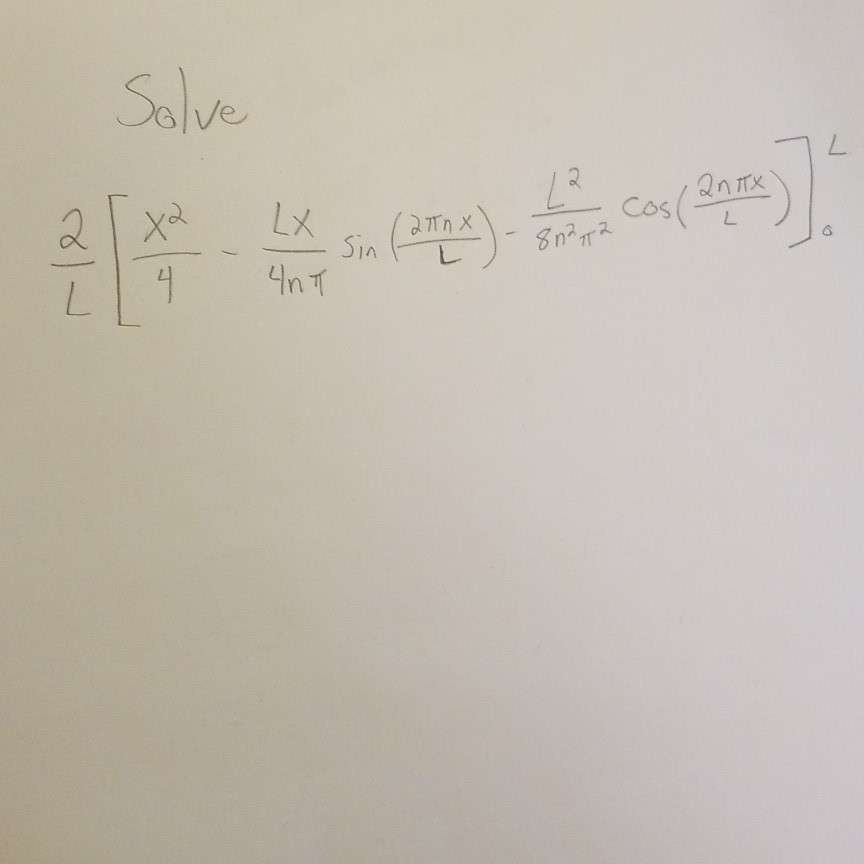 Solve
2/L [ x²/4 - Lx/4nπ sin(2πnx/L) - L²/8n²π² cos(2nπx/L) ]₀ᴸ